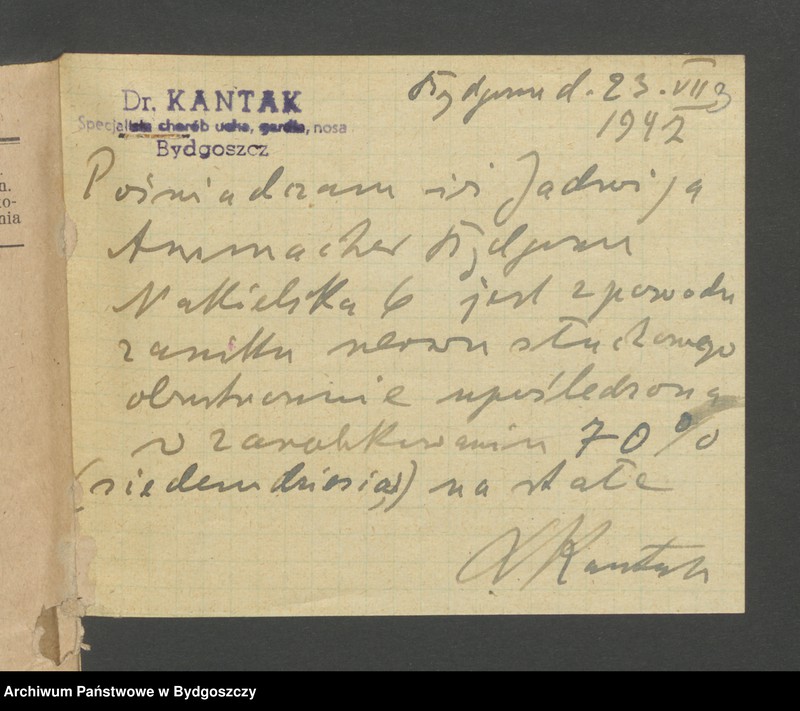 n.
to-
nia
Dr. KANTAK
Specjalista chorób ucha, gardła, nosa
Bydgoszcz
d. 23. VII
1942
Poświadczam iż Jadwiga
Ammacher Bydgoszcz
Nakielska 6 jest z powodu
zaniku nerwu słuchowego
obustronnie upośledzona
w zarobkowaniu 70%
(siedemdziesiąt) na stałe
Kantak
Archiwum Państwowe w Bydgoszczy